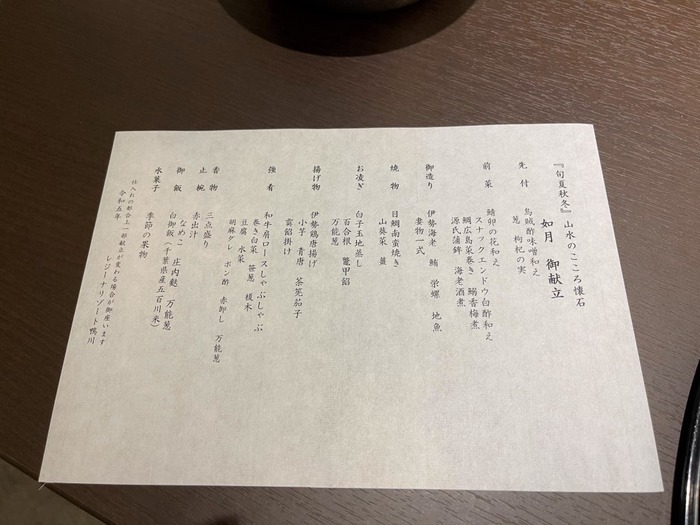 『旬夏秋冬』山水のこころ懐石
如月　御献立
先付　烏賊酢味噌和え
葱　枸杞の実
前菜　鯖卵の花和え
スナックエンドウ白酢和え
鯛広島菜巻き　鰯香梅煮
源氏蒲鉾　海老酒煮
御造り　伊勢海老　鮪　栄螺　地魚
妻物一式
焼物　目鯛南蛮焼き
山葵菜　薑
お凌ぎ　白子玉地蒸し
百合根　鼈甲餡
万能葱
揚げ物　伊勢鶏唐揚げ
小芋　青唐　茶筅茄子
雲餡掛け
強肴　和牛肩ロースしゃぶしゃぶ
巻き白菜　笹葱　榎木
豆腐　水菜
胡麻ダレ　ポン酢　赤卸し　万能葱
香物　三点盛り
止椀　赤出汁
なめこ　庄内麩　万能葱
御飯　白御飯（千葉県産五百川米）
水菓子　季節の果物
仕入れの都合上一部献立が変わる場合が御座います
令和五年　レジーナリゾート鴨川